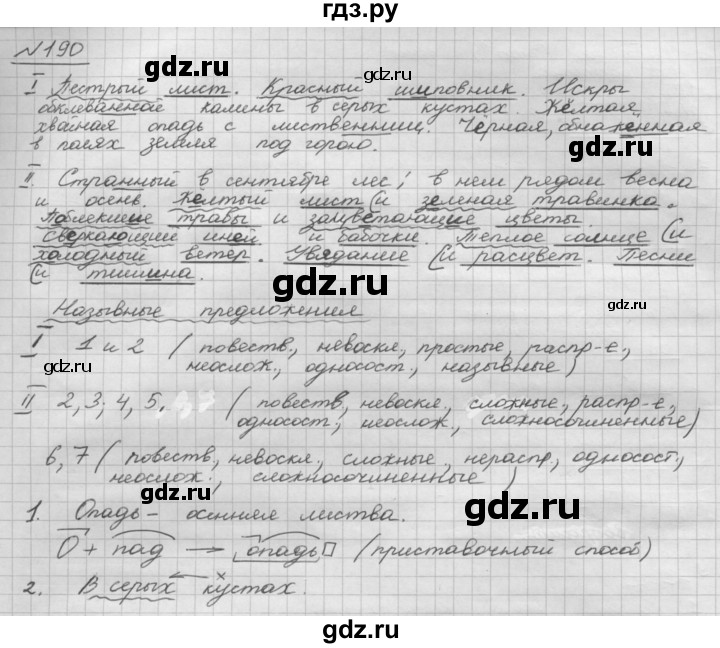 гдз.ру
№190
I Пестрый лист. Красный шиповник. Искры
gdz.ru
gdz.ru
обклёванной калины в серых кустах. Жёлтая
хвойная опадь с лиственниц. Чёрная, обнажённая
в полях земля под горою.
gdz.ru
gdz.ru
II. Странный в сентябре лес; в нем рядом весна
и осень. Желтый лист (и зеленая травинка.
Поблекшие травы и зацветающие цветы.
Сверкающий иней и бабочки. Теплое солнце (и
gdz.ru
холодный ветер. Увядание (и расцвет. Песни
(и тишина.
gdz.ru
gdz.ru
Назывные предложения
I 1 и 2 (повеств., невоскл., простые, распр-е,
gdz.ru
неослож., односост., назывные)
gdz.ru
II 2, 3, 4, 5, (повеств, невоскл., сложные, распр-е,
gdz.ru
односост, неослож., сложносочиненные)
6, 7 (повеств, невоскл., сложные, нераспр, односост,
неослож., сложносочиненные)
gdz.ru
1. Опадь – осенняя листва.
gdz.ru
О + пад → опадь (приставочный способ)
gdz.ru
x
2. В серых кустах.
gdz.ru